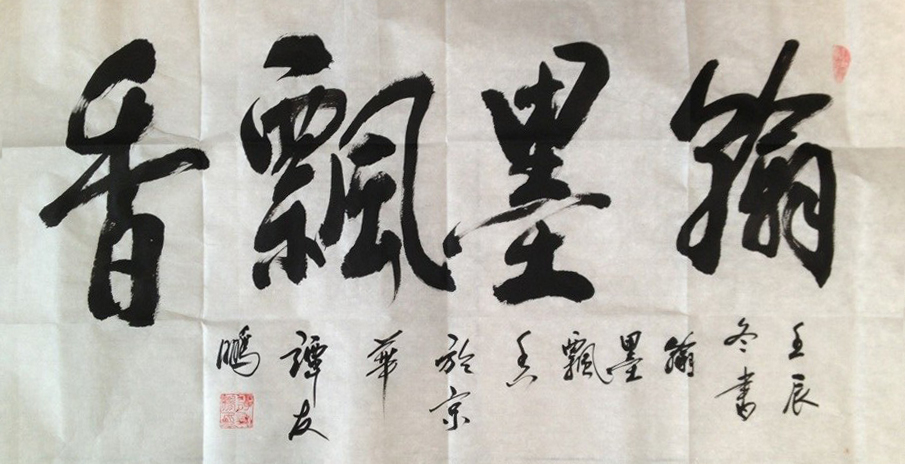 翰墨飄香
壬辰
冬書
翰
墨
飄
香
於京
華
譚友
鵬